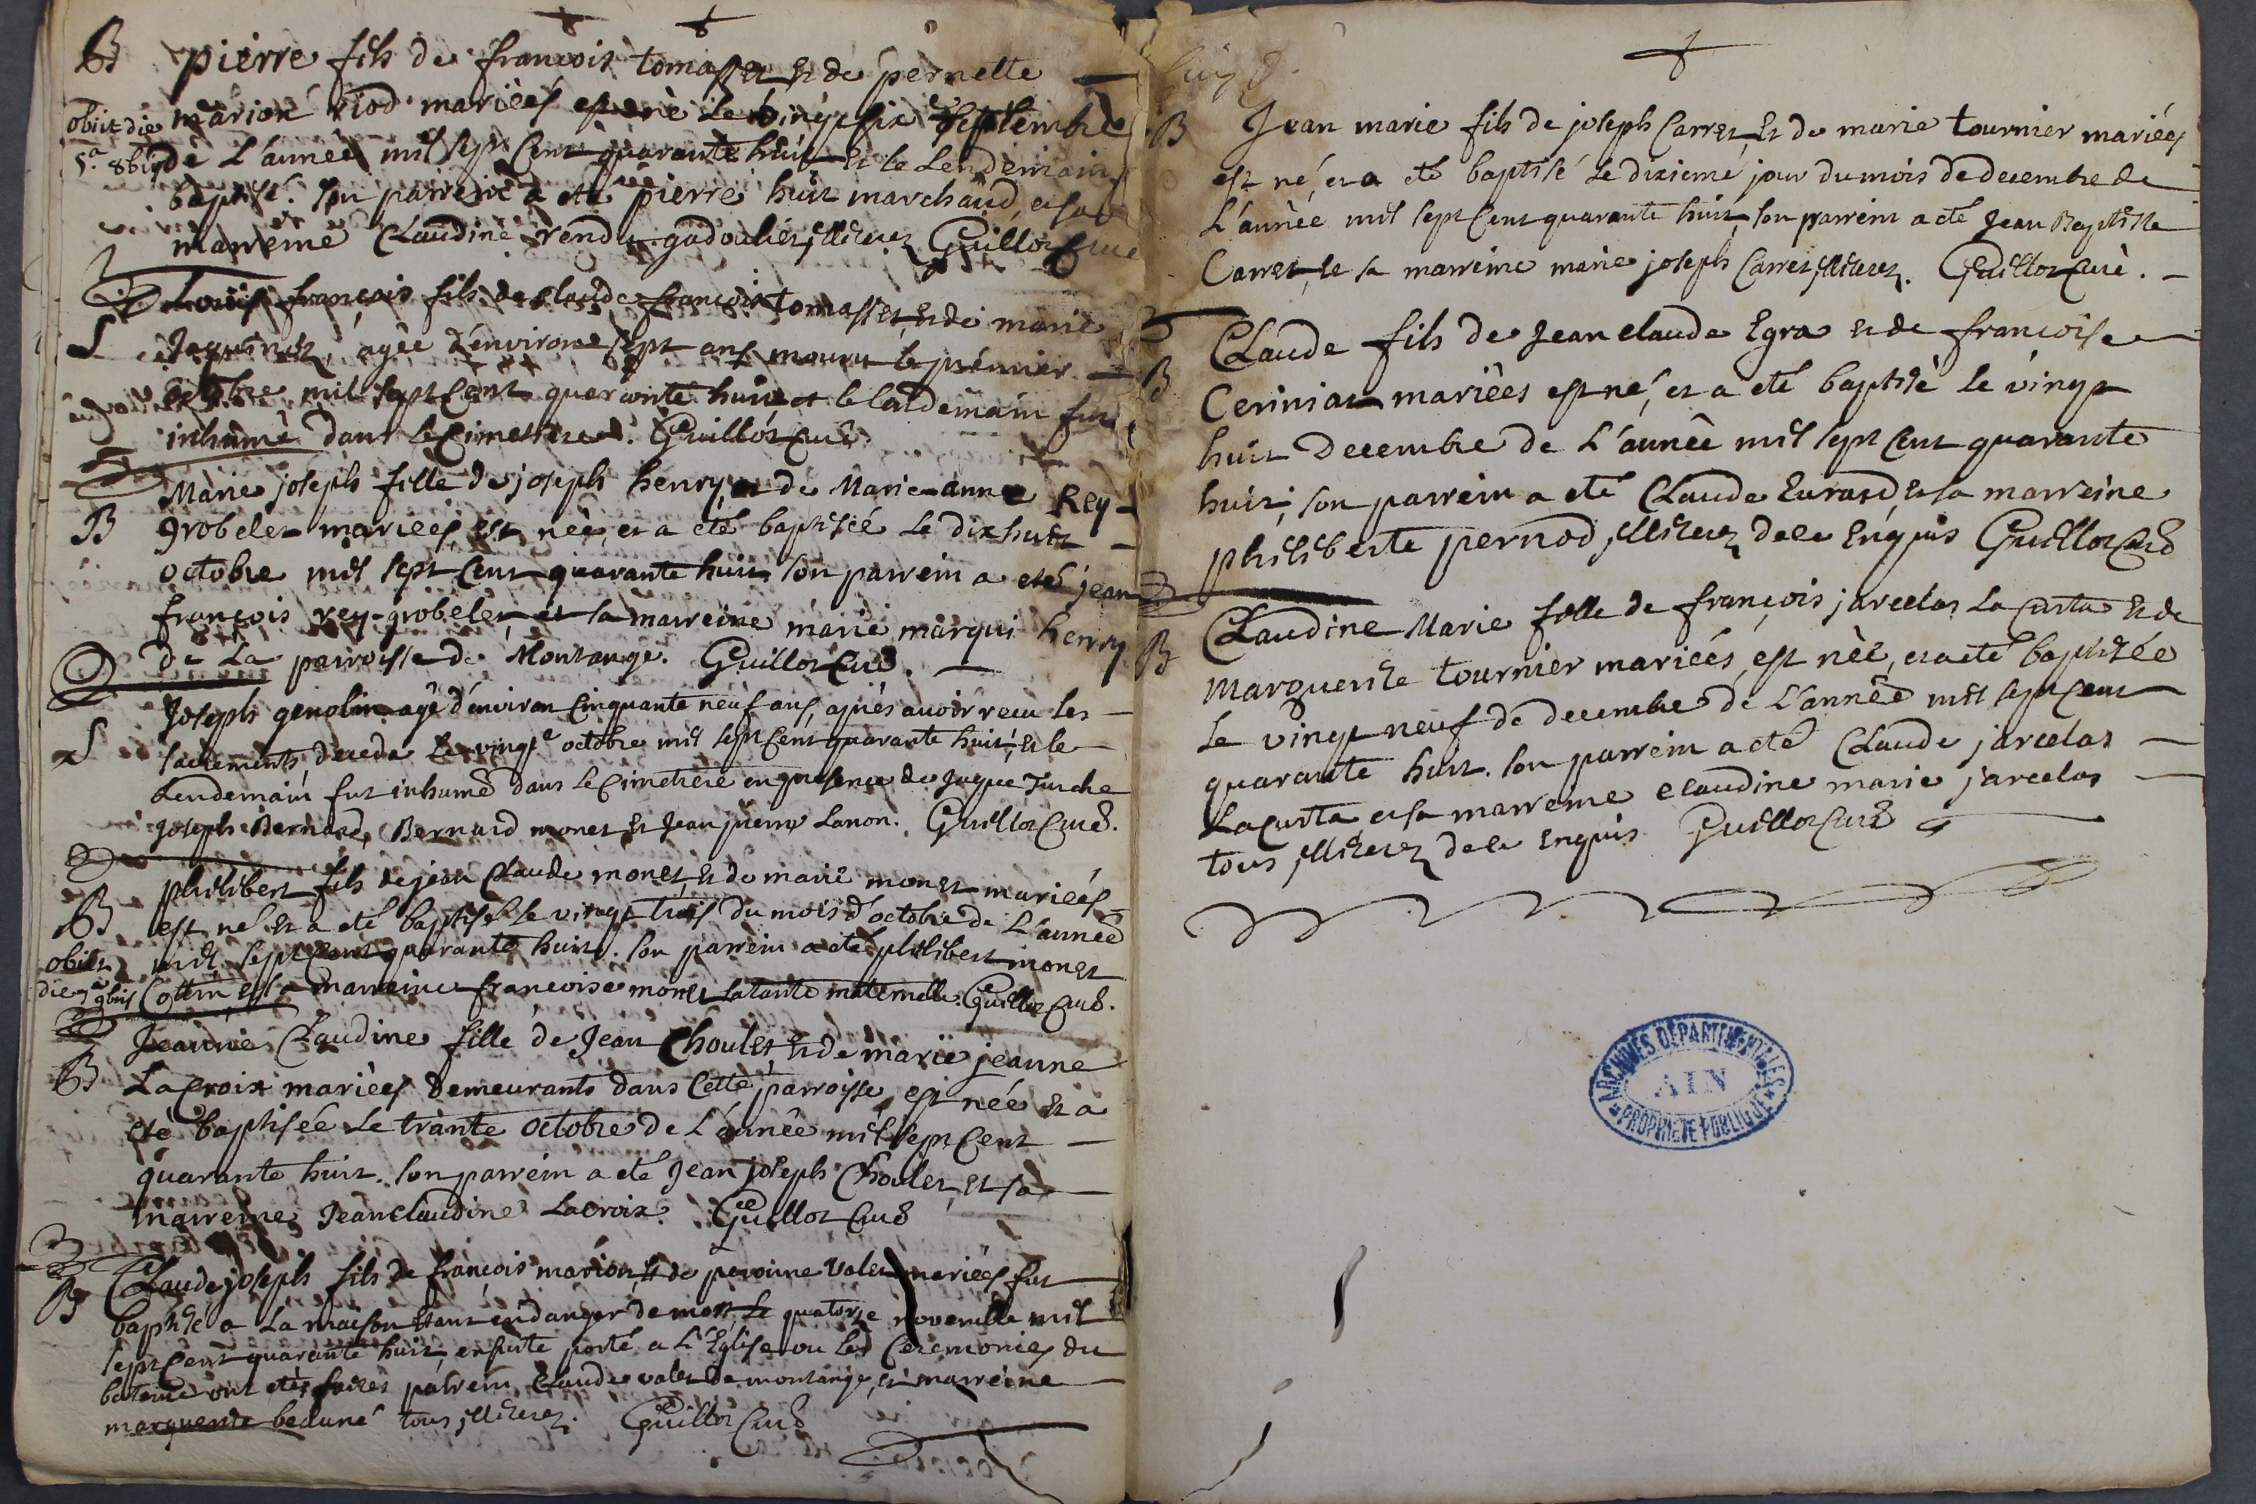 B pierre fils de françois tomasset et de pernette
obiit die marion riod mariées est né le vingt six septembre
5.a 8bris de L'année mil sept Cent quarante huit et le Lendemain
baptisé. son parrein a eté pierre huit marchand, et sa
marreine Claudine rendu gadoulier, illiterez Guillot Curé
Louis françois fils de claude françois tomasset, et de marie
S Jaquinet, agée d'environ sept ans mouru le premier
octobre mil sept cent quarante huit et le landemain fut
inhumé dans le Cimetiere. Guillot Curé
Marie joseph fille de joseph henry, et de Marie-anne Rey-
B grobelet mariées, est née, et a eté baptisée le dix huit
octobre mil sept Cent quarante huit son parrein a eté jean
françois rey-grobelet et la marreine marie marqui henry
de La parroisse de Montange. Guillot Curé.
Joseph genolin agé d'environ Cinquante neuf ans, après avoir reçu les
S sacrements, deceda le vingt e octobre mil sept Cent quarante huit, et le
Lendemain fut inhumé dans le Cimetiere en presence de Jaque Turche
Joseph Bernard, Bernard monet et Jean pierre Lanon. Guillot Curé.
philibert fils de jean Claude monet, et de marie monet mariées
B est né et a eté baptisé le vingt trois du mois d'octobre de L'année
obiit mil sept Cent quarante huit. son parrein a eté philibert monet
die 7a 9bris Cottin et sa marreine francoise monet sa tante maternelle. Guillot Curé.
Jeanne Claudine fille de Jean Choulet et de marie jeanne
B La Croix mariées demeurants dans Cette parroisse, est née et a
eté baptisée le trante octobre de L'année mil sept Cent
quarante huit. son parrein a eté Jean joseph Choulet, et sa
marreine Jeanclaudine Lacroix. Guillot Curé
Claude joseph fils de françois marion et de peronne Valet mariées fut
B baptisé a La maison etant en danger de mort le quatorze novembre mil
sept Cent quarante huit, ensuite porté a L'Eglise ou les Ceremonies du
bateme ont etés faites parrein Claude valet de montange, et marreine
marguerite beduné tous illiterez. Guillot Curé
Jean marie fils de joseph Carret, et de marie tournier mariées
B est né, et a eté baptisé le dixieme jour du mois de decembre de
L'année mil sept Cent quarante huit, son parrein a eté Jean Baptiste
Carret, et sa marreine marie joseph Carret, illiterez. Guillot Curé.
Claude fils de Jean claude Egra et de francoise
B Ceriniat mariées est né, et a eté baptisé le vingt
huit Decembre de L'année mil sept Cent quarante
huit; son parrein a eté Claude Eurard, et sa marreine
philiberte pernod, illiterez dele enquis Guillot Curé
Claudine Marie fille de françois jarcelat La Curta et de
B Marguerite tournier mariées, est née, et a eté baptisée
le vingt neuf de decembre de L'année mil sept Cent
quarante huit. son parrein a eté Claude jarcelat
La Curta et sa marreine claudine marie jarcelat
tous illiterez dele enquis Guillot Curé
ARCHIVES DEPARTEMENTALES
AIN
PROPRIETE PUBLIQUE